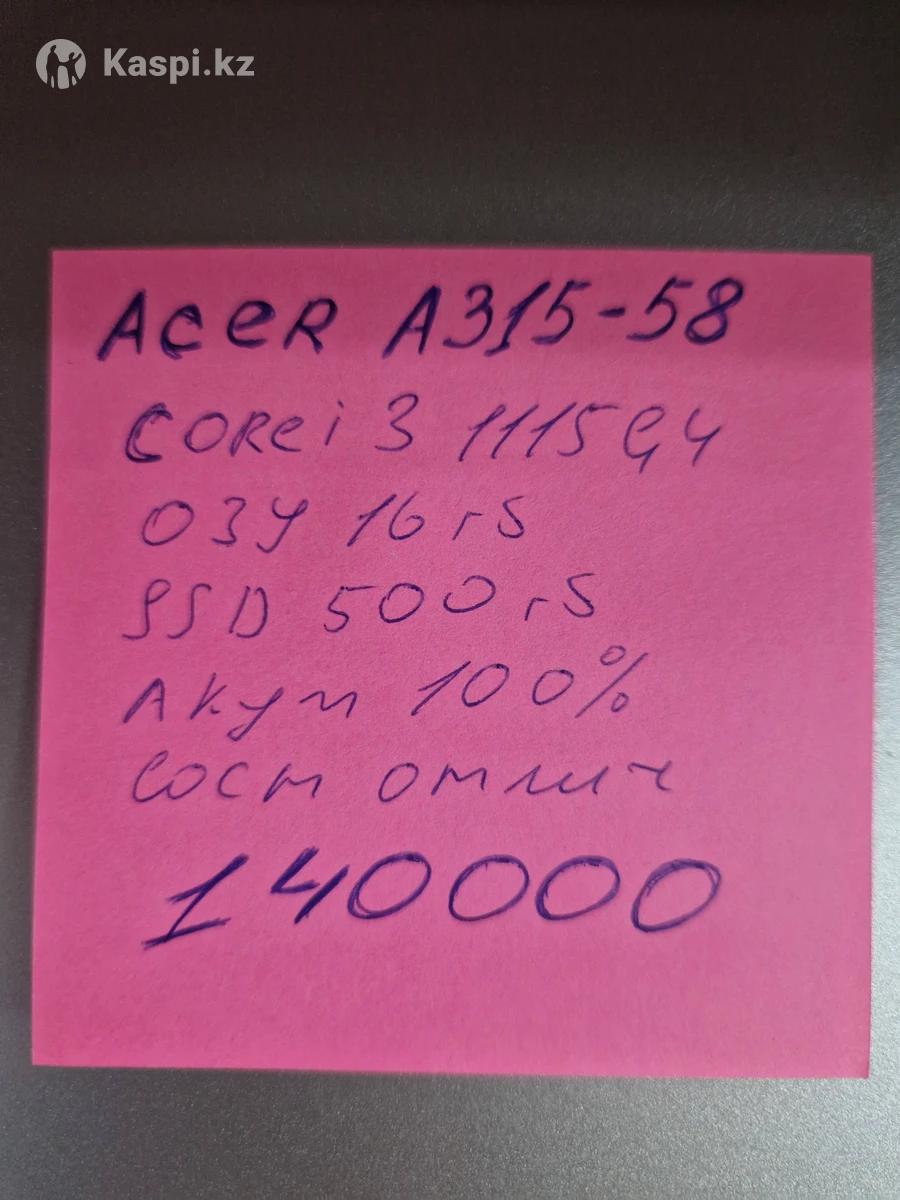 Kaspi.kz
Acer A315-58
Core i3 1115G4
ОЗУ 16 гб
SSD 500 гб
Акум 100%
Сост отлич
140000